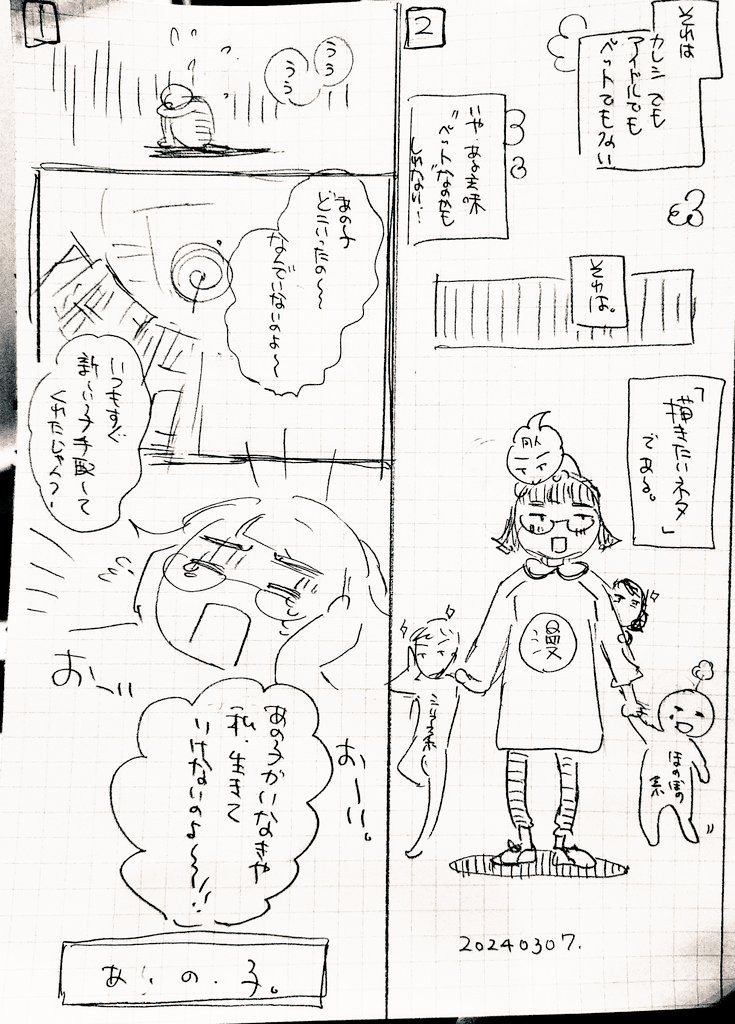 1
うう
うう
あの子
どこいったの〜
なんでいないのよ〜
いつもすぐ
新しい子手配して
くれたじゃん?
おーい
あの子がいなきゃ
私、生きて
いけないのよ〜!!
おーい。
あ・の・子。
2
それは
カレシでも
アイドルでも
ペットでもない
いや、ある意味
"ペット"なのかも
しれない…
それは。
「描きたいネタ」
である。
漫
ほのぼの
系
20240307.